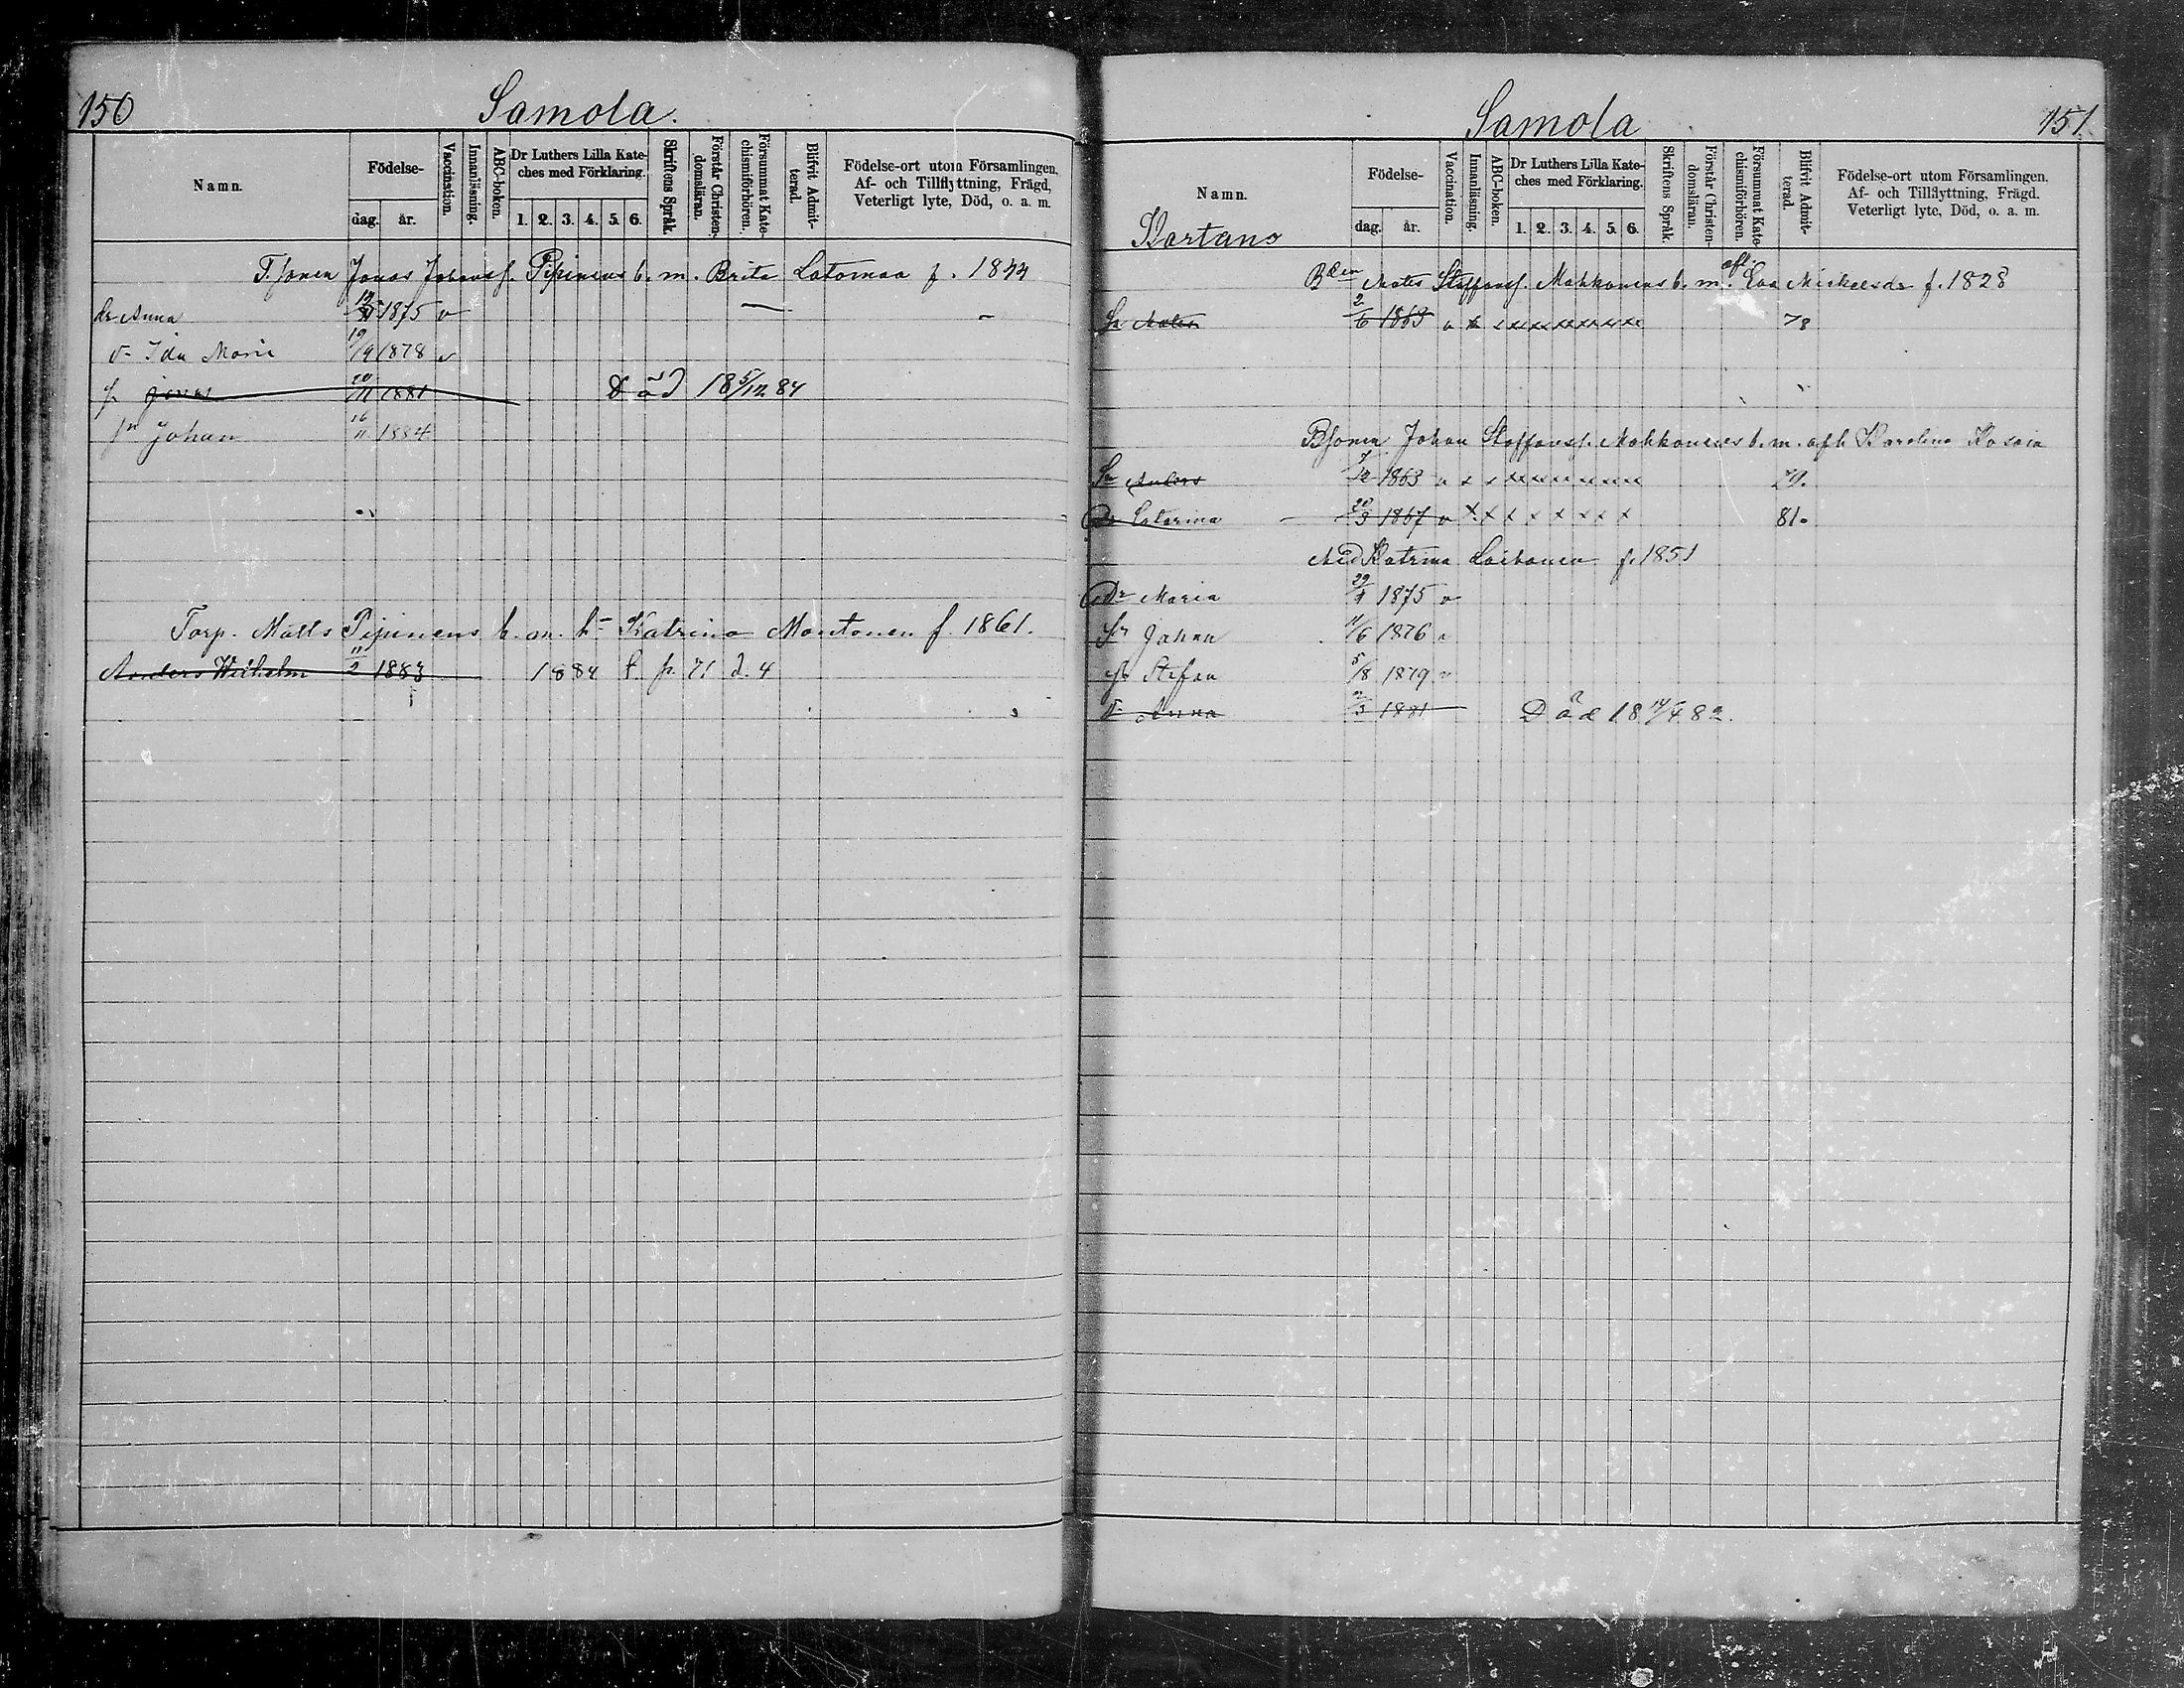 150
Samola.
Namn.
Födelse-
dag. år.
Vaccination.
Innanläsning.
ABC-boken.
Dr Luthers Lilla Kate-
ches med Förklaring.
1. 2. 3. 4. 5. 6.
Skriftens Språk.
Förstår Christen-
domsläran.
Försummat Kate-
chismiförhören.
Blifvit Admit-
terad.
Födelse-ort utom Församlingen,
Af- och Tillflyttning, Frägd,
Veterligt lyte, Död, o. a. m.
T.sonen Jonas Johanss. Pipinens b. m. Brita Latomaa f. 1844
dr Anna 1875 v
d- Ida Maria 19/9 1878 v
s- Jonas 20/11 1881 Död 18 5/12 84
sn Johan 16/11 1884
Torp. Matts Pipinens b. m. h- Katrina Mantonen f. 1861.
Anders Wilhelm 11/2 1883 1884 f. p. 71 d. 4
Samola
151
Namn.
Kartano
Födelse-
dag. år.
Vaccination.
Innanläsning.
ABC-boken.
Dr Luthers Lilla Kate-
ches med Förklaring.
1. 2. 3. 4. 5. 6.
Skriftens Språk.
Förstår Christen-
domsläran.
Försummat Kate-
chismiförhören.
Blifvit Admit-
terad.
Födelse-ort utom Församlingen.
Af- och Tillflyttning, Frägd.
Veterligt lyte, Död, o. a. m.
Bden Mats Staffanss. Mahkonens b. m. afl. Eva Mickelsdr f. 1828
Sn Mats 2/6 1863 v x x xx xx xx xx xx xx 78
Bsonen Johan Staffanss. Mahkonens b. m. afl. Karolina
Sn Anders 7/12 1863 v x x xx xx xx xx xx xx 79.
Dr Catarina 20/3 1867 v x x x x x x x x 81.
Med Katrina Loikonen f. 1851
Dr Maria 1875 v
Sn Johan 11/6 1876 v
Sn Stefan 5/8 1879 v
d- Anna 2/3 1881 Död 18 14/4 82.